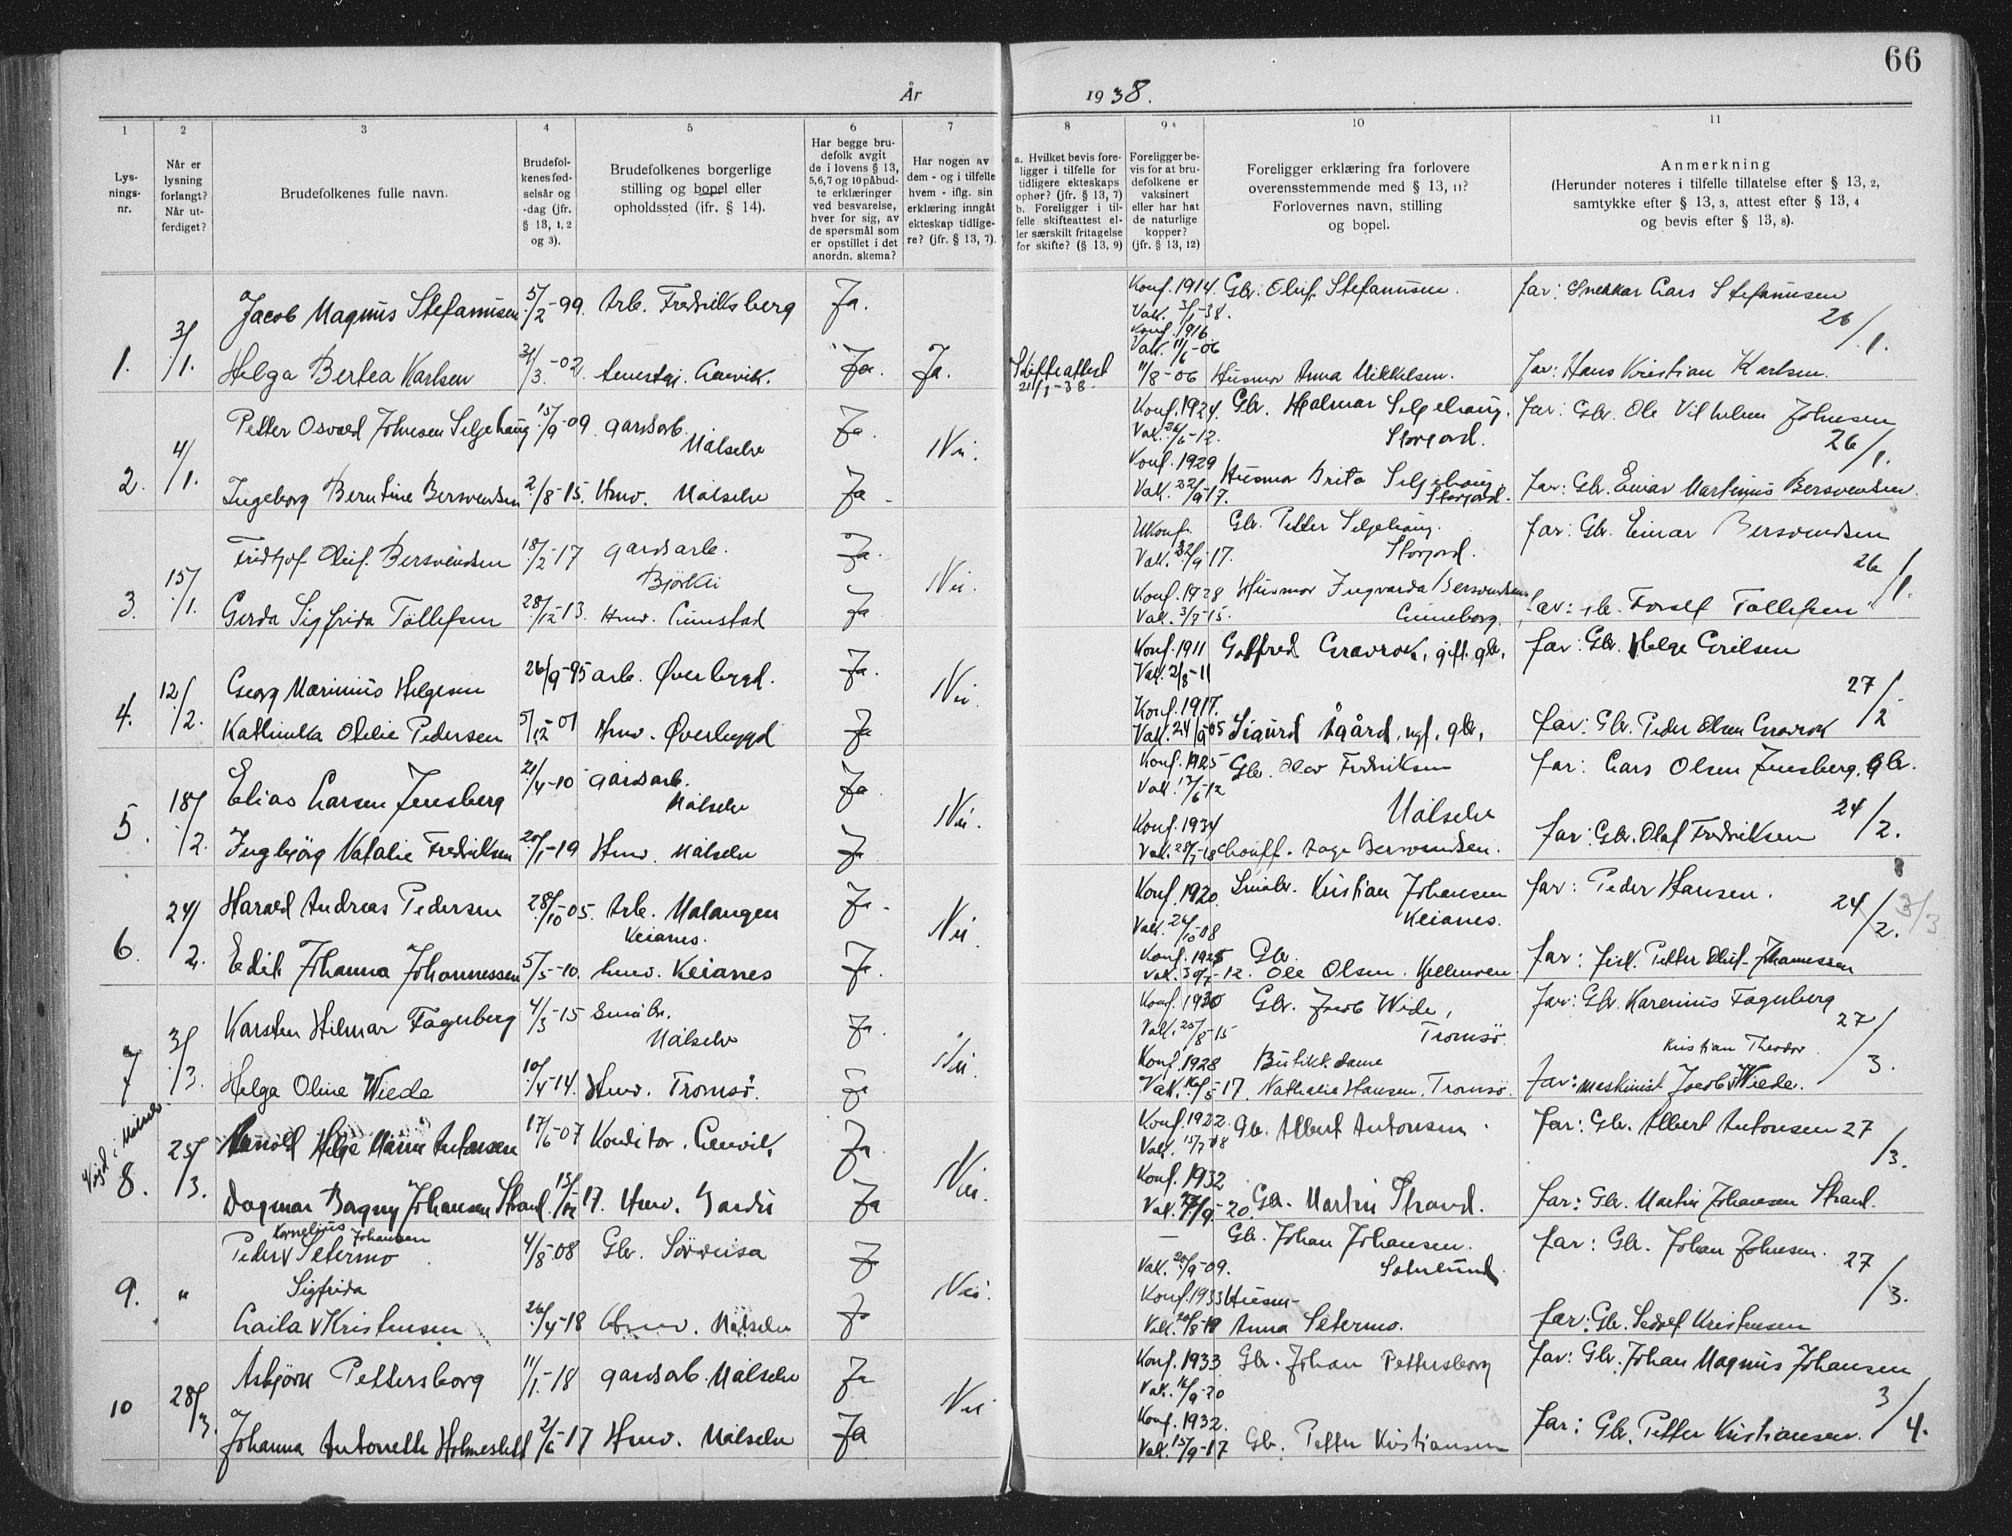 66
År 1938.
1 2 3 4 5 6 7 8 9 10 11
Lysningsnr.
Når er lysning forlangt? Når utferdiget?
Brudefolkenes fulle navn.
Brudefolkenes fødselsår og -dag (jfr. § 13, 1, 2 og 3).
Brudefolkenes borgerlige stilling og bopel eller opholdssted (ifr. § 14).
Har begge brudefolk avgit de i lovens § 13, 5,6,7 og 10 påbudte erklæringer ved besvarelse, hver for sig, av de spørsmål som er opstillet i det anordn. skema?
Har nogen av dem - og i tilfelle hvem - iflg. sin erklæring inngått ekteskap tidligere? (jfr. § 13, 7).
a. Hvilket bevis foreligger i tilfelle for tidligere ekteskaps ophør? (jfr. § 13, 7) b. Foreligger i tilfelle skifteattest eller særskilt fritagelse for skifte? (§ 13, 9)
Foreligger bevis for at brudefolkene er vaksinert eller har hat de naturlige kopper? (jfr. § 13, 12)
Foreligger erklæring fra forlovere overensstemmende med § 13, 11? Forlovernes navn, stilling og bopel.
Anmerkning (Herunder noteres i tilfelle tillatelse efter § 13, 2, samtykke efter § 13, 3, attest efter § 13, 4 og bevis efter § 13, 8).
1. 3/1. Jacob Magnus Stefanussen 5/2-99. Arb. Fredriksberg Ja. Konf. 1914. Vak. 3/1-38. Gbr. Oluf Stefanussen. far: Snekker Lars Stefanussen 26/1.
Helga Bertea Karlsen 31/3-02. Lenvik. Ja. Ja. Skifteattest 21/1-38. Konf. 1916 Vak. 11/6-06 11/8-06 Husmor Anna Mikkelsen. far: Hans Kristian Karlsen.
2. 4/1. Petter Osvald Johnsen Seljehaug 15/9-09. gardsarb. Målselv Ja. Nei. Konf. 1924. Vak. 26/6-12. Gbr. Halmar Seljehaug, Storjord. far: Gbr. Ole Vilhelm Johnsen 26/1.
Ingeborg Berntine Bersvendsen 2/8-15. Hmv. Målselv Ja. Konf. 1929 Vak. 22/9-17. Husmor Brita Seljehaug, Storjord. far: Gbr. Einar Martinius Bersvendsen.
3. 15/1. Fridtjof Oluf Bersvendsen 18/2-17 gardsarb. Björkli Ja. Nei. Ukonf. Vak. 22/9-17. Gbr. Petter Seljehaug. Storjord. far: Gbr. Einar Bersvendsen 26/1.
Gerda Sigfrida Tollefsen 28/12-13. Hmv. Ja Konf. 1928 Vak. 3/7-15. Husmor Ingvarda Bersvendsen far: Tollefsen
4. 12/2. Georg Marinius Helgesen 26/9-95 arb. Øverbygd. Ja. Nei. Konf. 1911 Vak. 2/8-11 Gotfred Gravrok, gift, gbr, far: Gbr. Helge Eirilsen 27/2
Kathinka Otelie Pedersen 5/12-01 Hmv. Øverbygd Ja Konf. 1917. Vak. 24/9-05 Sigurd Ågård, ugt. gbr, far: Gbr. Peder Olsen Gravrok
5. 18/2. Elias Larsen Jensberg 21/4-10 gardsarb. Målselv Ja Nei. Konf. 1925 Vak. 17/6-12 Gbr. Olav Fredriksen Målselv far: Lars Olsen Jensberg, Gbr. 24/2.
Ingbjørg Natalie Fredriksen 20/1-19 Hmv. Målselv Ja Konf. 1934 Vak. 28/7-18 Chauff. Aage Bersvendsen. far: Gbr. Olaf Fredriksen
6. 24/2. Harald Andreas Pedersen 28/10-05. Arb. Malangen Keianes. Ja. Nei. Konf. 1920. Vak. 26/10-08 Småbr. Kristian Johansen Keianes. far: Peder Hansen. 24/2. 3/3
Edit Johanna Johannessen 5/5-10. hmv. Keianes Ja. Konf. 1925 Gbr. Ole Olsen. far: fisk. Petter Oluf Johannessen
7 3/3. Karsten Hilmar Fagerberg 4/3-15 Småbr. Målselv Ja. Nei. Konf. 1930 Vak. 25/8-15 Gbr. Jacob Wide, Tromsö. far: Gbr. Karenius Fagerberg 27/3.
Helga Oline Wiede 10/4-14. Hmv. Tromsö. Ja Konf. 1928 Vak. 16/5-17. Butikkdame Nathalie Hansen. Tromsö. far: maskinist Kristian Theodor Jacob v Wiede.
Vigd. i Målselv.
8. 25/3. Arnold Helge Marin Antonsen 17/6-07 Konditor. Lenvik, Ja. Nei. Konf. 1922. Vak. 15/7-08 Gbr. Albert Antonsen. far: Gbr. Albert Antonsen 27/3.
Dagmar Bagny Johansen Strand. 15/12-17. Hmv. Bardu Ja Konf. 1932 Vak. 17/9-20. Gbr. Martin Strand. far: Gbr. Martin Johansen Strand.
9. " Peder v Kornelius Johansen Setermo 4/8-08 Gbr. Sörreisa Ja Nei. — Vak. 20/9-09. Gbr. Johan Johansen. far: Gbr. Johan Johnsen. 27/3.
Laila v Sigfrida Kristensen 26/4-18 Hmv. Målselv Ja Konf. 1933 Vak. 20/8-19 Husm. Anna Setermo. far: Gbr. Kristensen
10 28/3. Asbjörn Pettersborg 11/1-18 gardsarb. Målselv Ja Nei Konf. 1933 Vak. 16/9-20 Gbr. Johan Pettersborg far: Gbr. Johan Magnus Johansen 3/4.
Johanna Antonette Holmeslett 2/6-17 Hmv. Målselv Ja Konf. 1932. Vak. 15/9-17 Gbr. Petter Kristiansen far: Gbr. Petter Kristiansen.